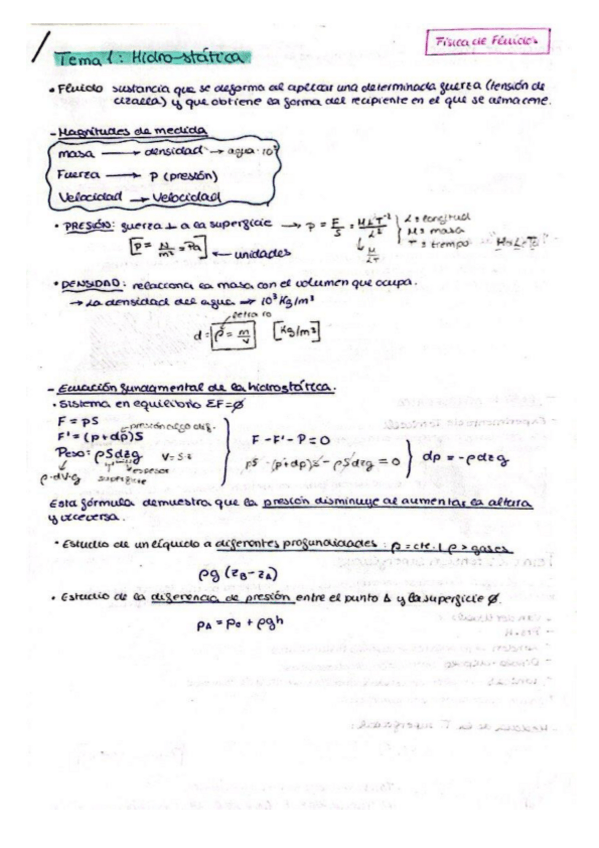 Física de Fluidos
Tema 1: Hidro-stática
• Fluido sustancia que se deforma al aplicar una determinada fuerza (tensión de
cizalla) y que obtiene la forma del recipiente en el que se almacene.
- Magnitudes de medida
masa → densidad → agua · 10³
Fuerza → P (presión)
Velocidad → Velocidad
• PRESIÓN: fuerza ⊥ a la superficie → P = F/S = MLT⁻²/L² L = longitud
M = masa
T = tiempo
[P = N/m² = Pa] ← unidades
M/LT
• DENSIDAD: relacciona la masa con el volumen que ocupa.
→ La densidad del agua → 10³ Kg/m³
letra ro
d = ρ = m/V [Kg/m³]
- Ecuación fundamental de la hidrostática.
• Sistema en equilibrio ΣF = ∅
F = pS
F' = (p+dp)S presión algo dif.
Peso = ρSdzg V = S·z
ρ·dV·g superficie espesor
F - F' - P = 0
pS - (p+dp)S - ρSdzg = 0
dp = -ρdzg
Esta fórmula demuestra que la presión disminuye al aumentar la altura
y viceversa.
• Estudio de un líquido a diferentes profundidades: ρ = cte. L ρ > gases
ρg (zB - zA)
• Estudio de la diferencia de presión entre el punto A y la superficie ∅.
PA = P0 + ρgh